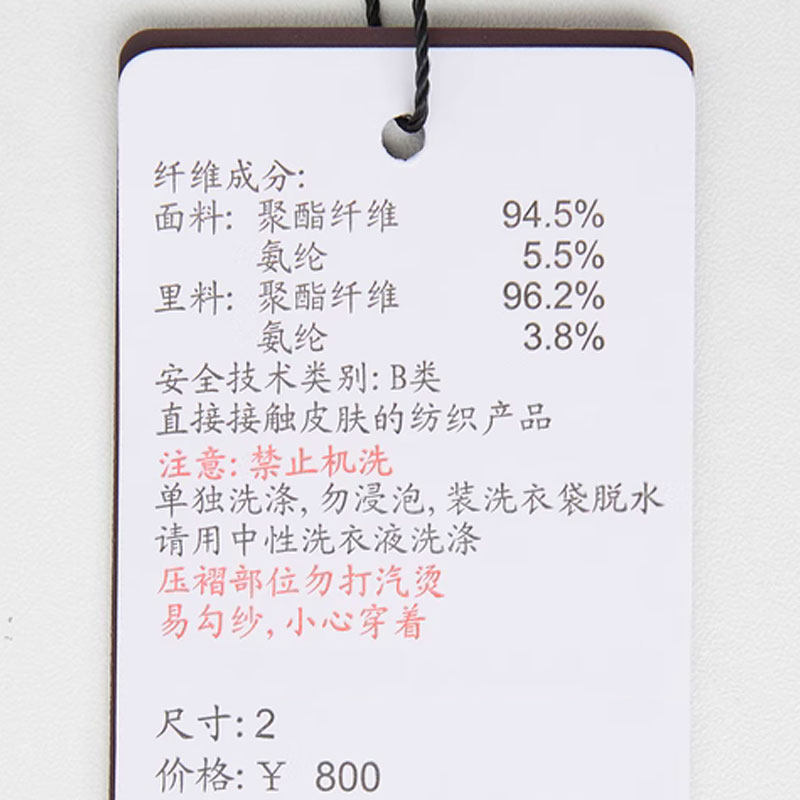 纤维成分:
面料: 聚酯纤维 94.5%
氨纶 5.5%
里料: 聚酯纤维 96.2%
氨纶 3.8%
安全技术类别: B类
直接接触皮肤的纺织产品
注意: 禁止机洗
单独洗涤, 勿浸泡, 装洗衣袋脱水
请用中性洗衣液洗涤
压褶部位勿打汽烫
易勾纱, 小心穿着
尺寸: 2
价格: ¥ 800